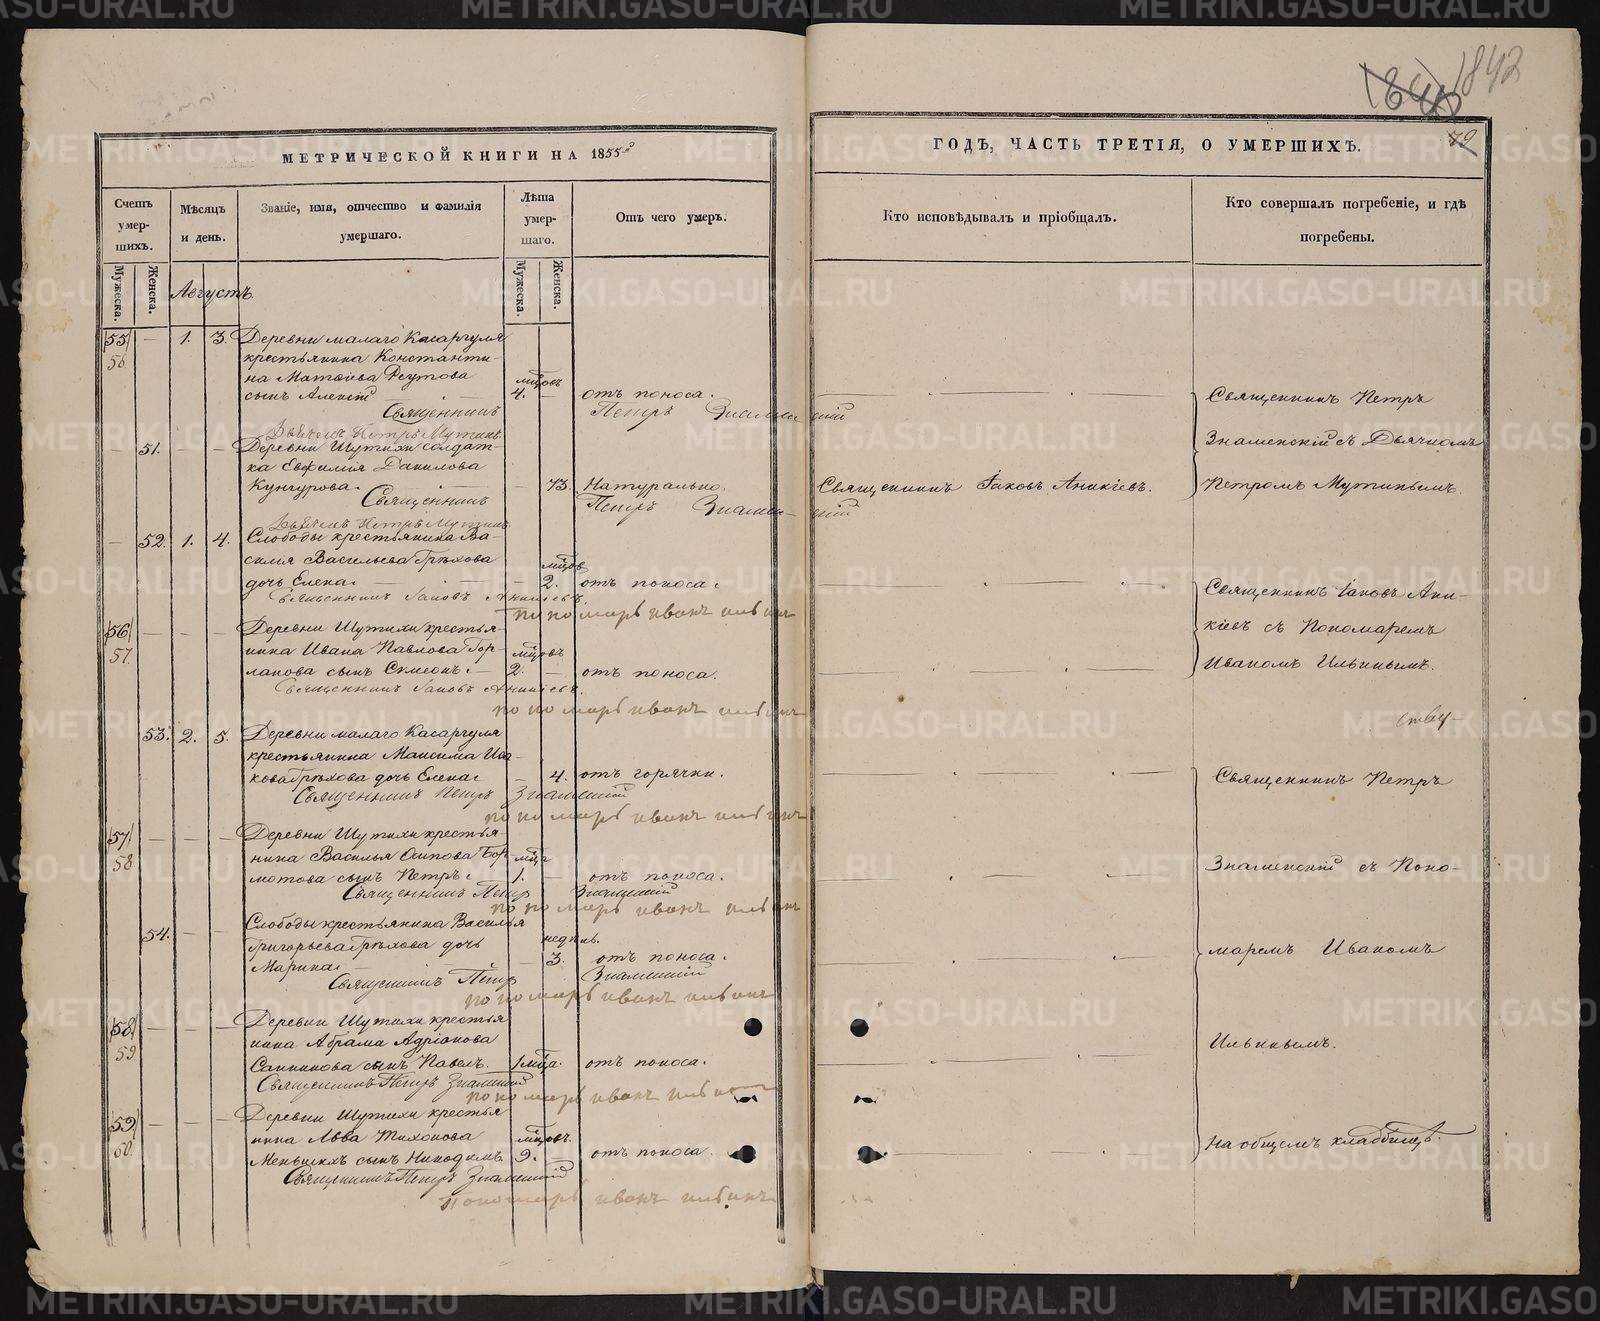 1842
79
МЕТРИЧЕСКОЙ КНИГИ НА 1855й
ГОДЪ, ЧАСТЬ ТРЕТІЯ, О УМЕРШИХЪ.
Счетъ умер-шихъ.
Мѣсяцъ и день.
Званіе, имя, отчество и фамилія умершаго.
Лѣта умер-шаго.
Отъ чего умеръ.
Кто исповѣдывалъ и пріобщалъ.
Кто совершалъ погребеніе, и гдѣ погребены.
Мужеска.
Женска.
Мужеска.
Женска.
Августъ.
55 — 1. 3. Деревни малаго Касаргуля
56 крестьянина Константи-
на Матвіева Реутова мцовъ
сынъ Алексій 4. — отъ поноса. Священникъ Петръ
Священникъ Петръ Знаменскій
Дьячекъ Петръ Мутинъ
— 51. — — Деревни Шутихи солдат- Знаменскій съ Дьячкомъ
ка Евфимія Данилова
Кунгурова. — 73. Натурально. Священникъ Іаковъ Аникіевъ. Петромъ Мутинымъ.
Священникъ Петръ Знаменскій
Дьячекъ Петръ Мутинъ
— 52. 1. 4. Слободы крестьянина Ва-
силія Васильева Грѣхова мцовъ
дочь Елена. — 2. отъ поноса. Священникъ Іаковъ Ани-
Священникъ Іаковъ Аникіевъ
пономарь иванъ ильинъ
56 — — — Деревни Шутихи крестья- кіевъ съ Пономаремъ
57. нина Ивана Павлова Гор- мцовъ Иваномъ Ильинымъ.
лакова сынъ Симеонъ. 2. — отъ поноса.
Священникъ Іаковъ Аникіевъ.
пономарь иванъ ильинъ
53. 2. 5. Деревни малаго Касаргуля
крестьянина Максима Иса-
кова Грѣхова дочь Елена. — 4. отъ горячки. Священникъ Петръ
Священникъ Петръ Знаменскій
пономарь иванъ ильинъ
57 — — — Деревни Шутихи крестья-
58 нина Василья Осипова Бор- мца Знаменскій съ Поно-
мотова сынъ Петръ. 1. — отъ поноса.
Священникъ Петръ Знаменскій
пономарь иванъ ильинъ
54. — — Слободы крестьянина Василья
Григорьева Грѣхова дочь недѣль. маремъ Иваномъ
Марина. — 3. отъ поноса.
Священникъ Петръ Знаменскій
пономарь иванъ ильинъ
58 — — — Деревни Шутихи крестья
59 нина Абрама Адріанова Ильинымъ.
Санникова сынъ Павелъ. 1 мца. отъ поноса.
Священникъ Петръ Знаменскій
пономарь иванъ ильинъ
59 — — — Деревни Шутихи крестья
60 нина Льва Тихонова мцовъ. На общемъ кладбищѣ.
Меньшихъ сынъ Никодимъ. 9. — отъ поноса.
Священникъ Петръ Знаменскій
Пономарь иванъ ильинъ
METRIKI.GASO-URAL.RU